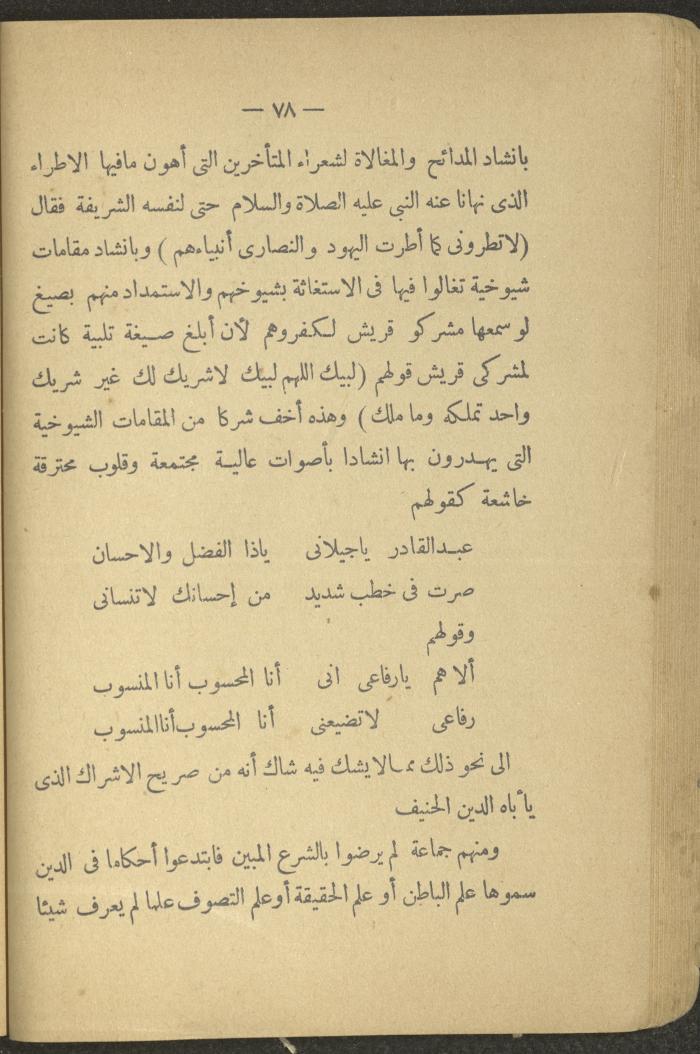 — ٧٨ —
بانشاد المدائح والمغالاة لشعراء المتأخرين التى أهون مافيها الاطراء
الذى نهانا عنه النبي عليه الصلاة والسلام حتى لنفسه الشريفة فقال
(لاتطرونى كما أطرت اليهود والنصارى أنبياءهم) وبانشاد مقامات
شيوخية تغالوا فيها فى الاستغاثة بشيوخهم والاستمداد منهم بصيغ
لو سمعها مشركو قريش لكفروهم لأن أبلغ صيغة تلبية كانت
لمشركى قريش قولهم (لبيك اللهم لبيك لاشريك لك غير شريك
واحد تملكه وما ملك) وهذه أخف شركا من المقامات الشيوخية
التى يهدرون بها انشادا بأصوات عالية مجتمعة وقلوب محترقة
خاشعة كقولهم
عبدالقادر ياجيلانى ياذا الفضل والاحسان
صرت فى خطب شديد من إحسانك لاتنسانى
وقولهم
ألاهم يارفاعى انى أنا المحسوب أنا المنسوب
رفاعى لاتضيعنى أنا المحسوب أنا المنسوب
الى نحو ذلك ممالايشك فيه شاك أنه من صريح الاشراك الذى
يأباه الدين الحنيف
ومنهم جماعة لم يرضوا بالشرع المبين فابتدعوا أحكاما فى الدين
سموها علم الباطن أو علم الحقيقة أوعلم التصوف علما لم يعرف شيئا